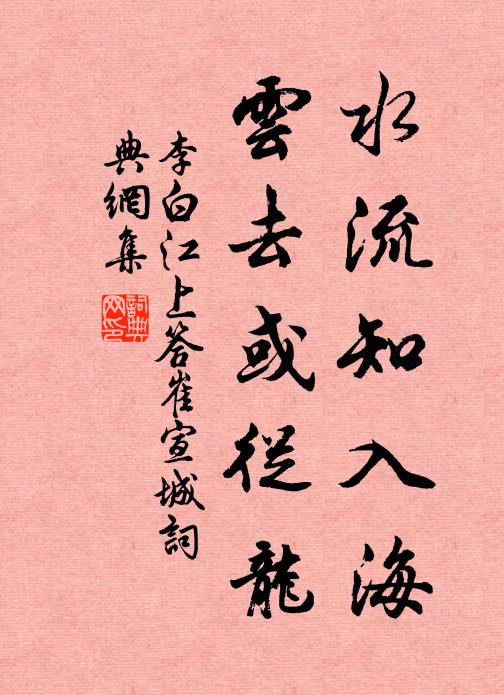 水流知入海
雲去或從龍
李白江上答崔宣城詞
典網集
詞典網印